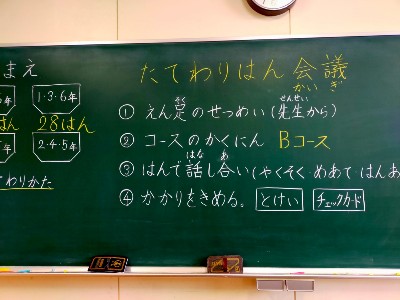 まえ
6年
1・3・6年
はん
28はん
5年
2・4・5年
わりかた
たてわりはん会議
かいぎ
① えん足のせつめい(先生から)
そく
せんせい
② コースのかくにん Bコース
③ はんで話し合い(やくそく・めあて・はんあ
はな
あ
④ かかりをきめる。 とけい チェックカード